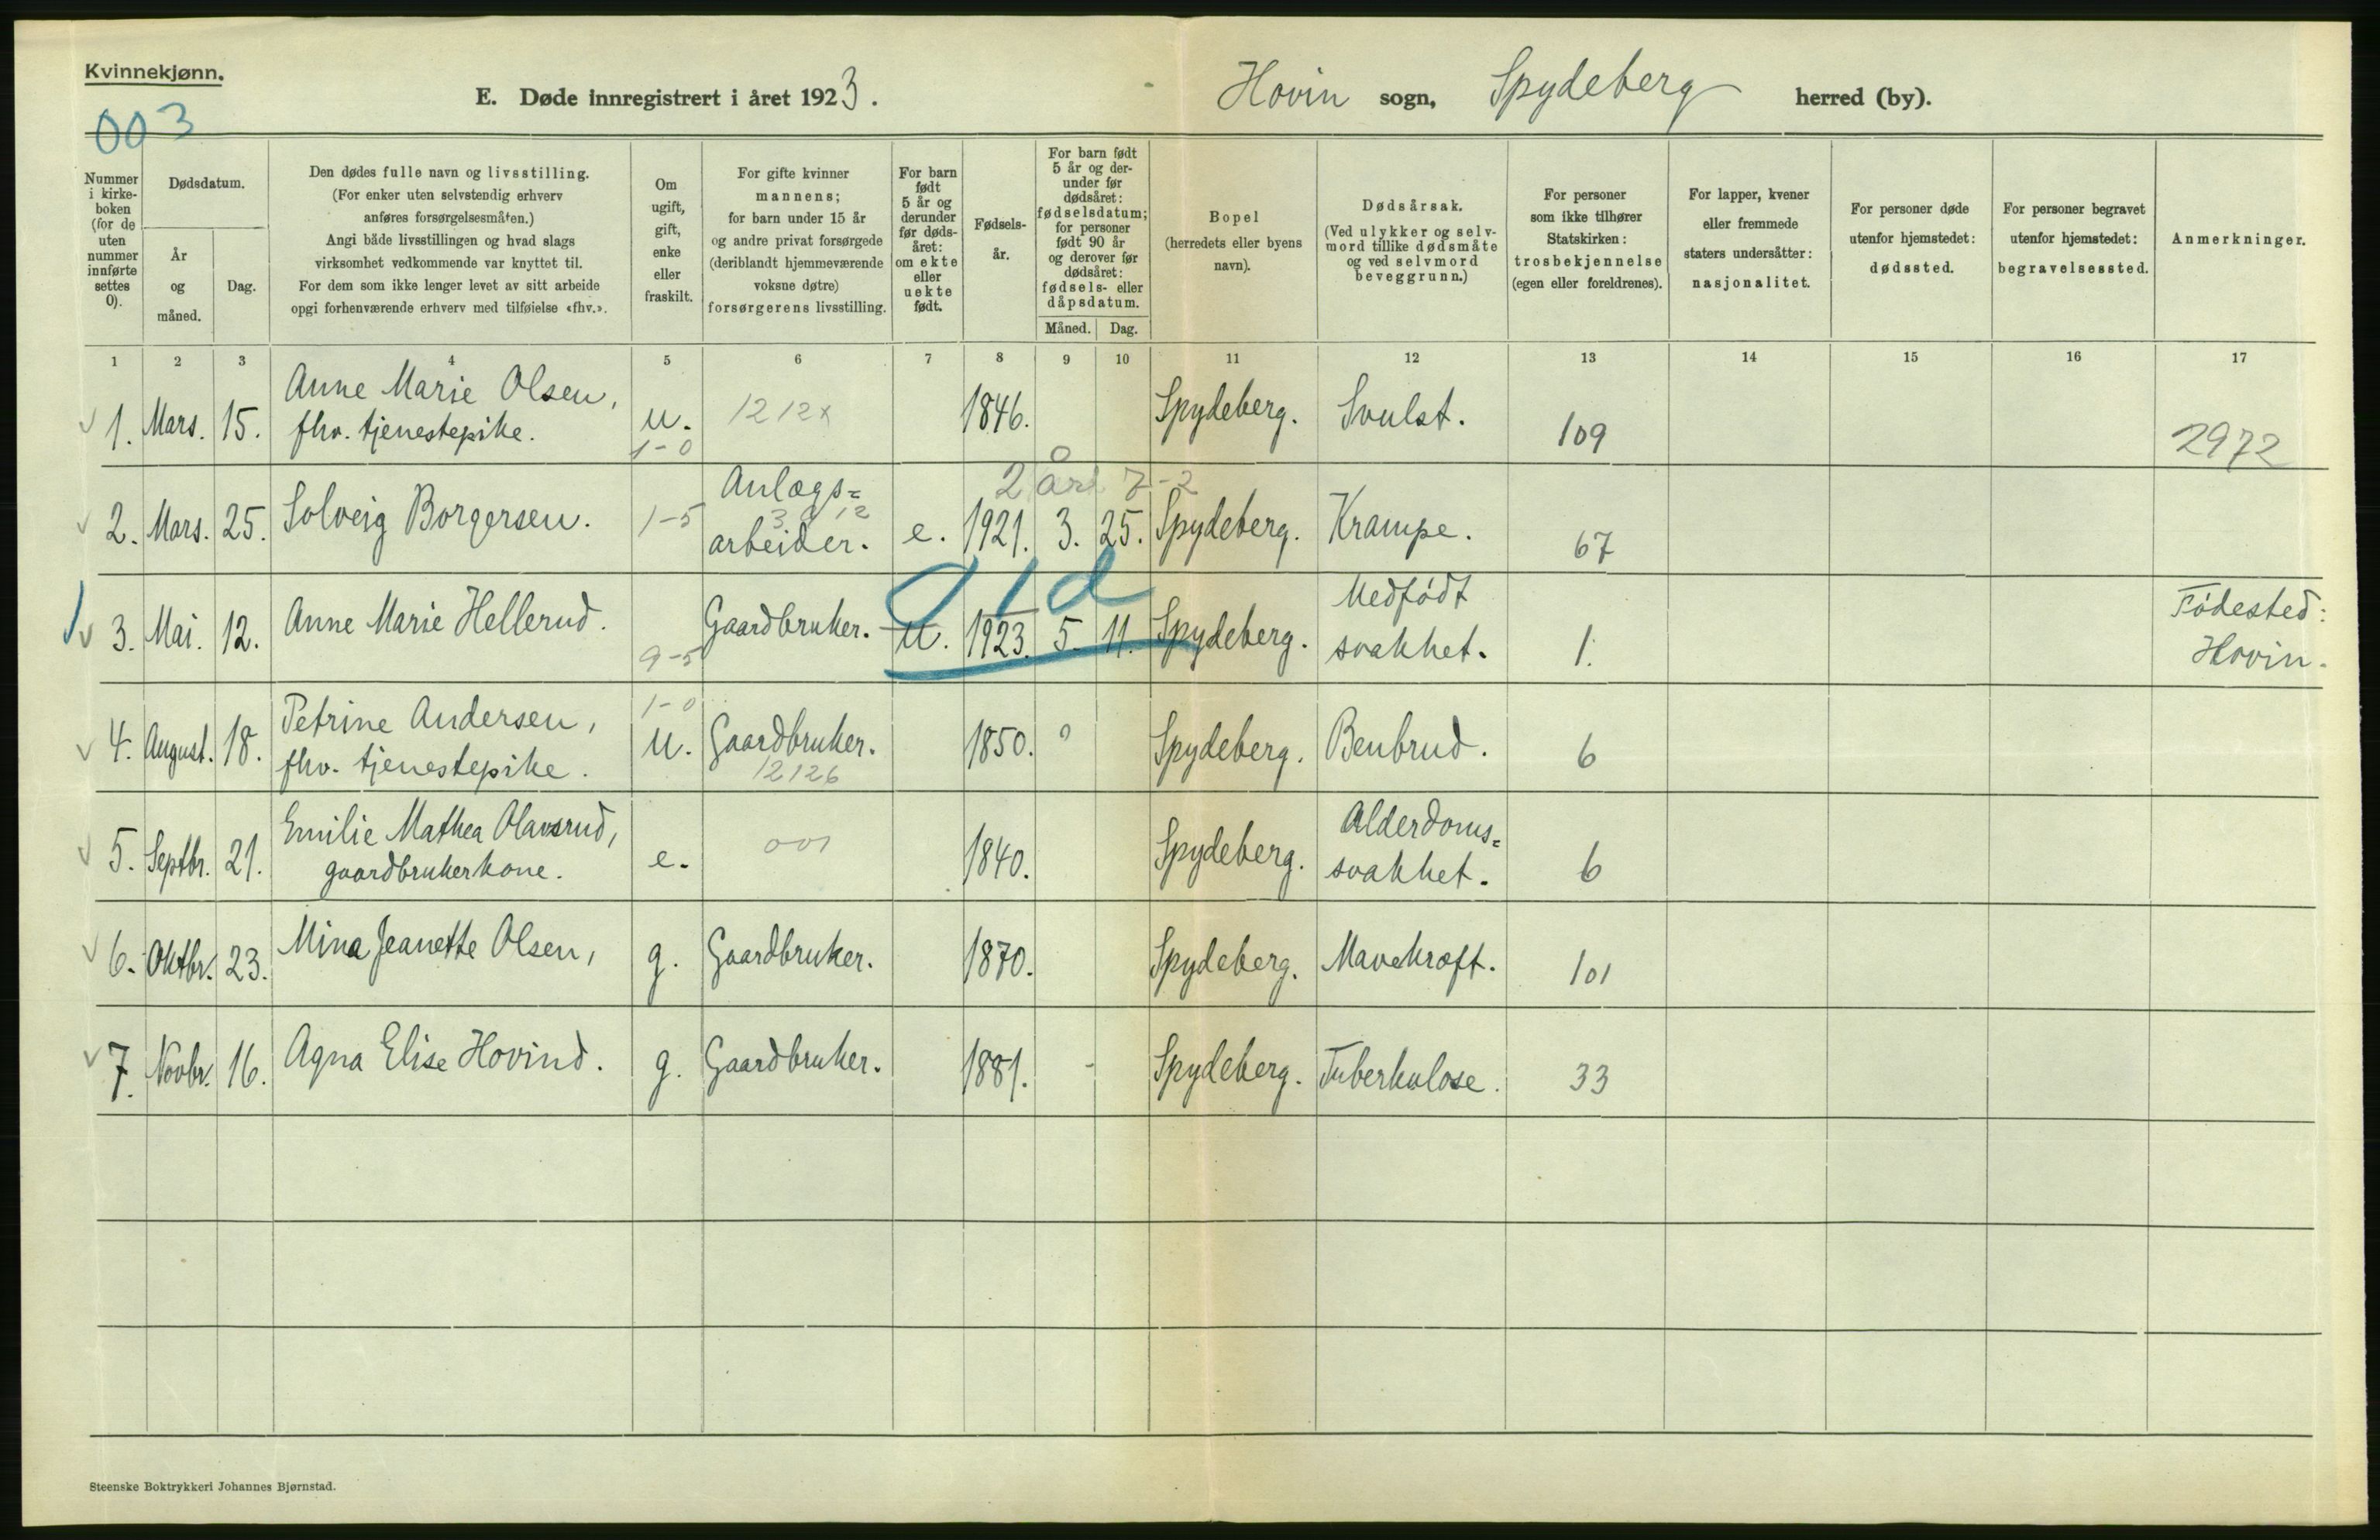 Kvinnekjønn.
003
E. Døde innregistrert i året 1923.
Hovin sogn, Spydeberg herred (by).
Nummer
i kirke-
boken
(for de
uten
nummer
innførte
settes
0).
Dødsdatum.
År
og
måned.
Dag.
Den dødes fulle navn og livsstilling.
(For enker uten selvstendig erhverv
anføres forsørgelsesmåten.)
Angi både livsstillingen og hvad slags
virksomhet vedkommende var knyttet til.
For dem som ikke lenger levet av sitt arbeide
opgi forhenværende erhverv med tilføielse «fhv.».
Om
ugift,
gift,
enke
eller
fraskilt.
For gifte kvinner
mannens;
for barn under 15 år
og andre privat forsørgede
(deriblandt hjemmeværende
voksne døtre)
forsørgerens livsstilling.
For barn
født
5 år og
derunder
før døds-
året:
om ekte
eller
uekte
født.
Fødsels-
år.
For barn født
5 år og der-
under før
dødsåret:
fødselsdatum;
for personer
født 90 år
og derover før
dødsåret:
fødsels- eller
dåpsdatum.
Måned. Dag.
Bopel
(herredets eller byens
navn).
Dødsårsak.
(Ved ulykker og selv-
mord tillike dødsmåte
og ved selvmord
beveggrunn.)
For personer
som ikke tilhører
Statskirken:
trosbekjennelse
(egen eller foreldrenes).
For lapper, kvener
eller fremmede
staters undersåtter:
nasjonalitet.
For personer døde
utenfor hjemstedet:
dødssted.
For personer begravet
utenfor hjemstedet:
begravelsessted.
Anmerkninger.
1 2 3 4 5 6 7 8 9 10 11 12 13 14 15 16 17
Anne Marie Olsen,
1. Mars. 15. fhv. tjenestepike. u. 1212x 1846. Spydeberg. Svulst. 109 2972
1-0
Anlægs= 2 år 7-2
2. Mars. 25. Solveig Borgersen. 1-5 arbeider. e. 1921. 3. 25. Spydeberg. Krampe. 67
Medfødt Fødested:
3. Mai. 12. Anne Marie Hellerud. Gaardbruker. u. 1923. 5. 11. Spydeberg. svakhet. 1. Hovin.
9-5
Petrine Andersen, 1-0
4. August. 18. fhv. tjenestepike. u. Gaardbruker. 1850. Spydeberg. Benbrud. 6
12126
Emilie Mathea Olavsrud, Alderdoms=
5. Septbr. 21. gaardbrukerkone. e. 001 1840. Spydeberg. svakhet. 6
6. Oktbr. 23. Mina Jeanette Olsen, g. Gaardbruker. 1870. Spydeberg. Mavekræft. 101
7. Novbr. 16. Agna Elise Hovind. g. Gaardbruker. 1881. Spydeberg. Tuberkulose. 33
Steenske Boktrykkeri Johannes Bjørnstad.